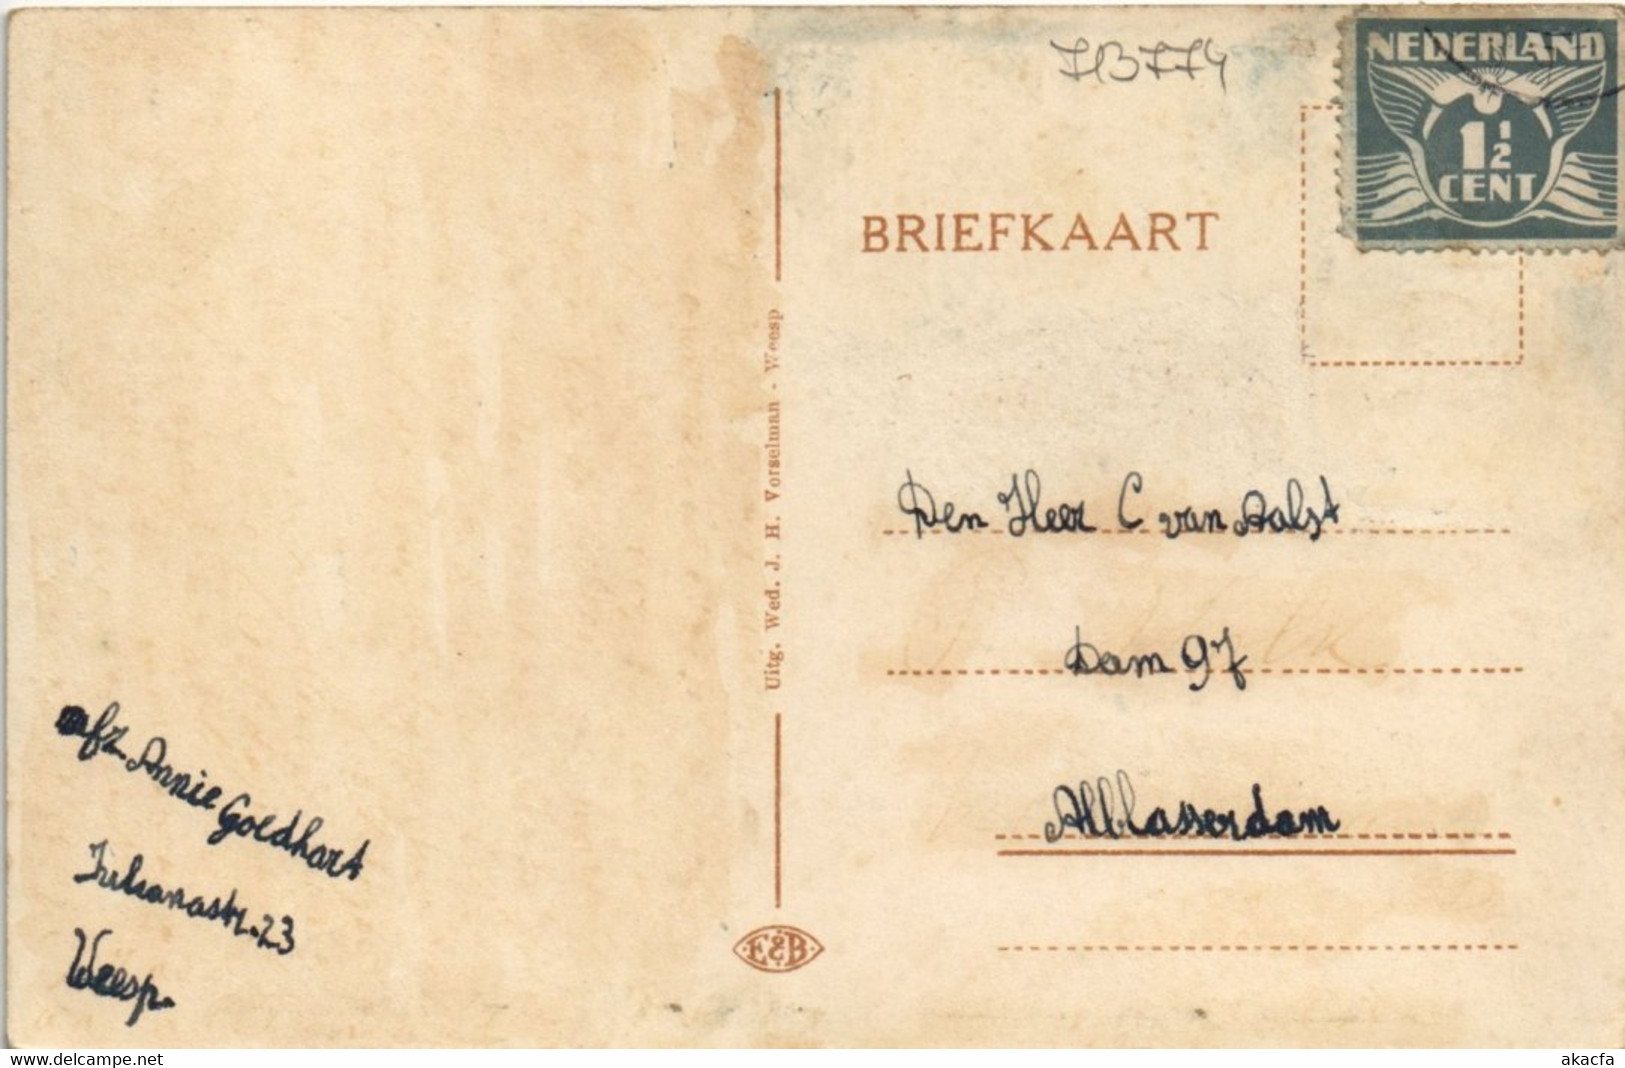 713774
NEDERLAND
1 1/2
CENT
BRIEFKAART
Uitg. Wed. J. H. Vorselman - Weesp
Den Heer C van Aalst
Dam 97
Alblasserdam
afz Annie Goedhart
Julianastr. 23
Weesp.
E&B
www.delcampe.net
akacfa